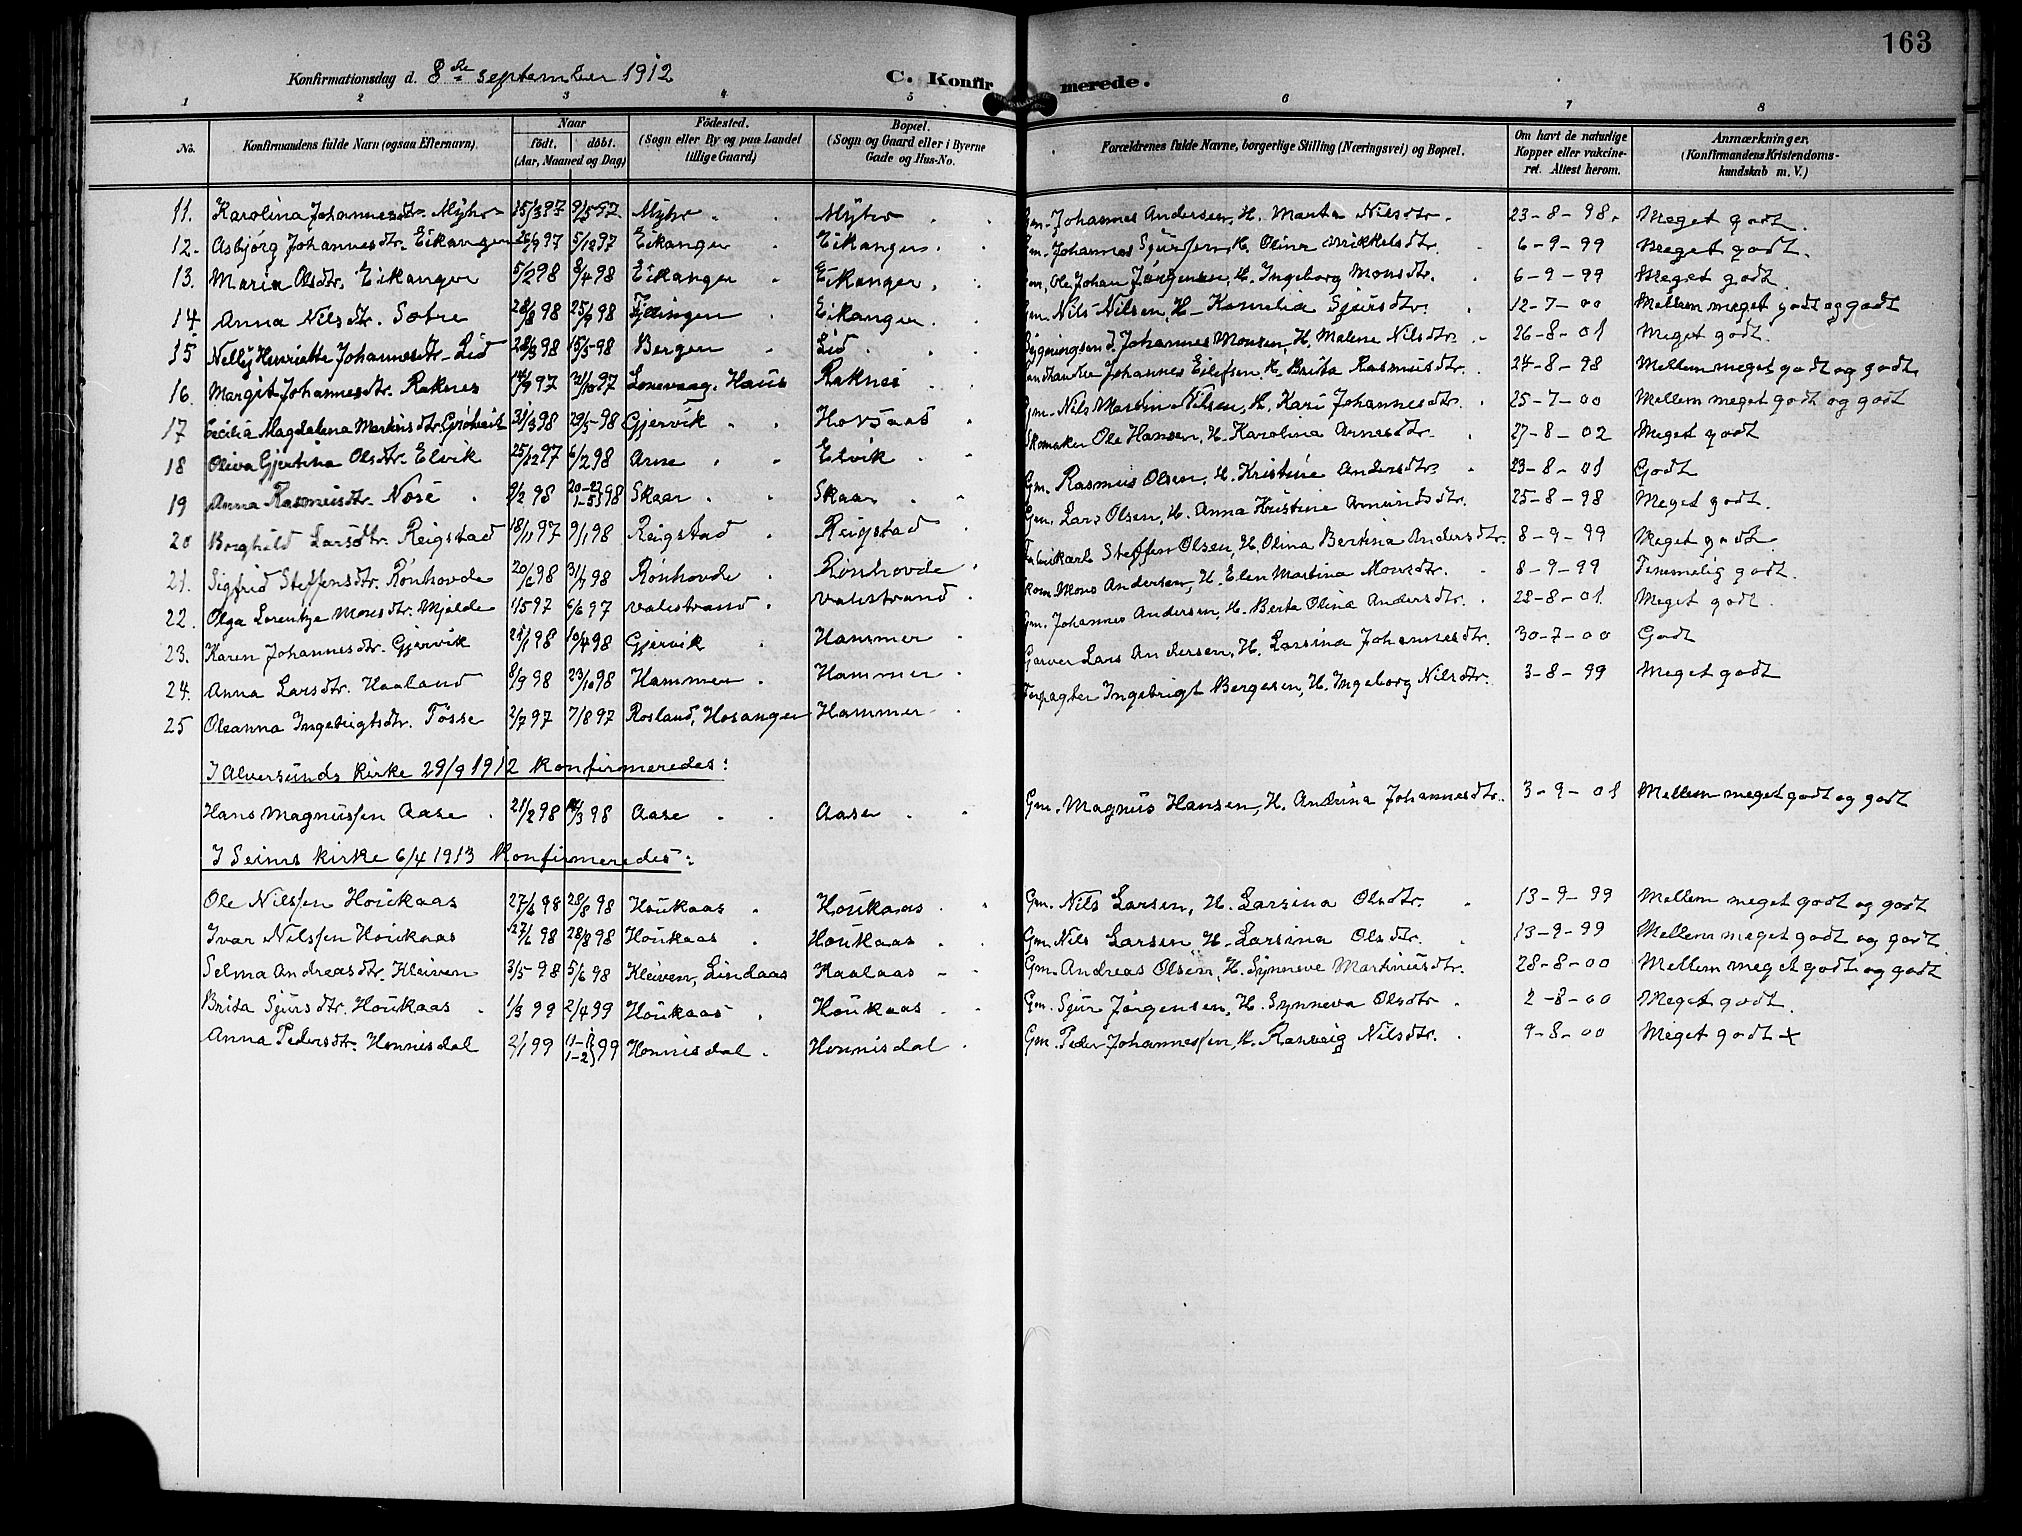 163
Konfirmationsdag d. 8de september 1912 C. Konfirmerede.
1 2 3 4 5 6 7 8
No. Konfirmandens fulde Navn (ogsaa Efternavn). Naar født. døbt. (Aar, Maaned og Dag) Fødested. (Sogn eller By og paa Landet tillige Gaard) Bopæl. (Sogn og Gaard eller i Byerne Gade og Hus-No. Forældrenes fulde Navne, borgerlige Stilling (Næringsvei) og Bopæl. Om havt de naturlige Kopper eller vaccineret. Attest herom. Anmærkninger. (Konfirmandens Kristendomskundskab m. V.)
11. Karolina Johannesdtr. Myhr 15/3 97 9/5 97 Myhr Myhr Gm. Johannes Andersen, H. Marta Nilsdtr. 23-8-98. Meget godt.
12. Asbjørg Johannesdtr. Eikanger 26/9 97 5/12 97 Eikanger Eikanger. Gm. Johannes Sjurssen H. Oline Mikkelsdtr. 6-9-99 Meget godt.
13. Maria Olsdtr. Eikanger 5/2 98 8/4 98 Eikanger Eikanger. Gm. Ole Johan Jørgensen, H. Ingeborg Monsdtr. 6-9-99 Meget godt.
14 Anna Nilsdtr. Sætre 28/8 98 25/9 98 Eikanger. Gm. Nils Nilsen, H. Kornelia Sjursdtr. 12-7-00 Mellem meget godt og godt
15 Nelly Henriette Johannesdtr. Lid 28/3 98 15/5-98 Bergen Lid. Johannes Monsen, H. Malene Nilsdtr. 26-8-01 Meget godt.
16. Margit Johannesdtr. Raknes 14/9 97 31/10 97 Lonevaag. Haus Raknes Landhandler Johannes Eilefsen. H. Brita Rasmusdtr. 24-8-98 Mellem meget godt og godt.
17 Cecilia Magdalena Martinsdtr. 31/3 98 29/5-98 Gjervik Hovsaas Gm. Nils Martin Nilsen, H. Kari Johannesdtr. 25-7-00 Mellem meget godt og godt
18 Oliva Gjertina Olsdtr. Elvik 25/12 97 6/2 98 Arne Elvik Skomaker Ole Hansen, H. Karolina Arnesdtr. 27-8-02 Meget godt
19 Anna Rasmusdtr. Næse 9/2 98 20-22/1-5} 98 Skaar Skaar Gm. Rasmus Olsen, H. Kristine Andersdtr. 23-8-01 Godt
20 Borghild Larsdtr. Reigstad 18/11 97 9/1 98 Reigstad Reigstad Gm. Lars Olsen, H. Anna Kristine Amundsdtr. 25-8-98 Meget godt.
21. Sigfrid Steffensdtr. Rønhovde 20/6 98 31/7 98 Rønhovde Rønhovde Fabrikarb Steffen Olsen, H. Olina Bertina Andersdtr. 8-9-99 Meget godt
22. Olga Lorentze Monsdtr. Mjelde 1/5 97 6/6 97 Valestrand Valestrand Skom. Mons Andersen, H. Elen Martina Monsdtr. 8-9-99 Temmelig godt.
23. Karen Johannesdtr. Gjervik 21/1 98 10/4 98 Gjervik Hammer Gm. Johannes Andersen, H. Berta Olina Andersdtr. 28-8-01 Meget godt.
24. Anna Larsdtr. Haaland 8/9 98 23/10 98 Hammer Hammer Garver Lars Andersen, H. Larsina Johannesdtr. 30-7-00 Godt
25 Oleanna Ingebrigtsdtr. Tøsse 2/7 97 7/8 97 Rosland, Hosanger Hammer Forpagter Ingebrigt Bergesen, H. Ingeborg Nilsdtr. 3-8-99 Meget godt
I Alversunds kirke 29/9 1912 konfirmeredes:
Hans Magnussen Aase 21/2 98 /3 98 Aase Aase Gm. Magnus Hansen, H. Andrina Johannesdtr. 3-9-01 Mellem meget godt og godt
I Seims kirke 6/4 1913 konfirmeredes:
Ole Nilssen Houkaas 27/6 98 28/8 98 Houkaas Houkaas Gm. Nils Larsen, H. Larsina Olsdtr. 13-9-99 Mellem meget godt og godt
Ivar Nilssen Houkaas 27/6 98 28/8 98 Houkaas Houkaas Gm. Nils Larsen, H. Larsina Olsdtr. 13-9-99 Mellem meget godt og godt
Selma Andreasdtr. Kleiven 3/5 98 5/6 98 Kleiven, Lindaas Haalaas Gm. Andreas Olsen, H. Synneve Martinusdtr. 28-8-00 Mellem meget godt og godt
Brita Sjursdtr. Houkaas 1/3 99 2/4 99 Houkaas Houkaas Gm. Sjur Jørgensen, H. Synneva Olsdtr 2-8-00 Meget godt.
Anna Pedersdtr. Honnisdal 2/1 99 99 Honnisdal Honnisdal Gm. Peder Johannessen, H. Ranveig Nilsdtr. 9-8-00 Meget godt +